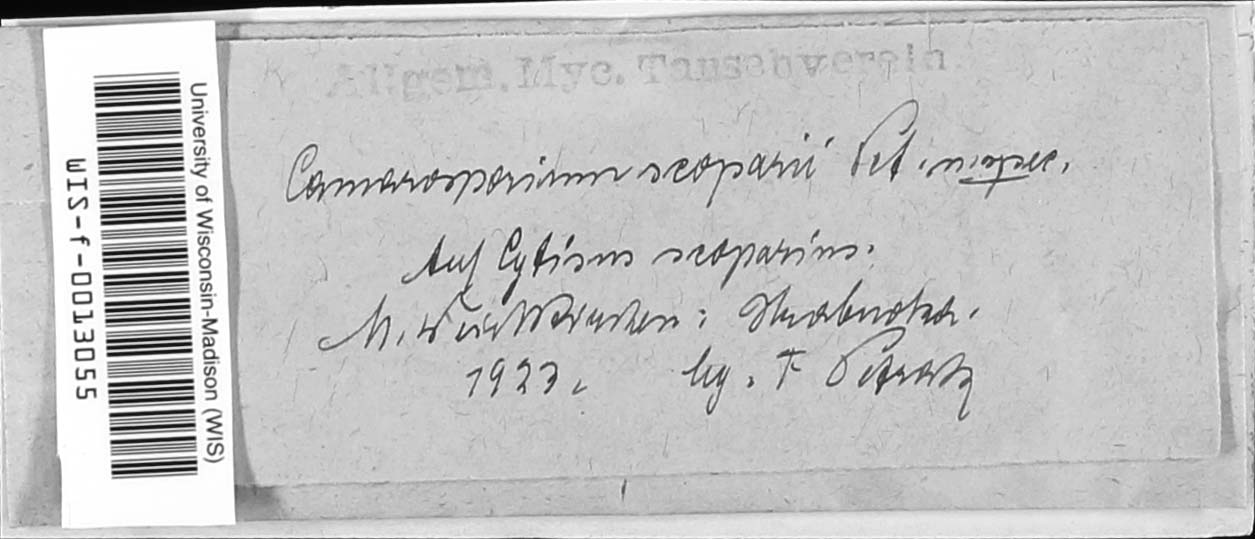 Allgem. Myc. Tauschverein
Camarosporium scoparii Pet. n. spec.
Auf Cytisus scoparius.
M. Weisskirchen:
1923. leg. F. Petrak
University of Wisconsin-Madison (WIS)
WIS-f-0013055